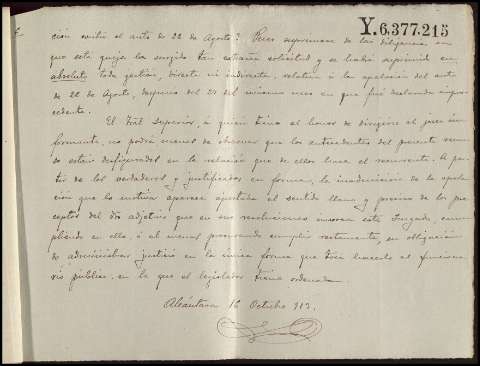 Y.6.377.215
ción emitió el auto de 22 de Agosto? Pues suprímanse de las diligencias, en
que esta queja ha surgido tan extraña solicitud y se habrá suprimido en
absoluto toda gestión, directa ni indirecta, relativa á la apelación del auto
de 22 de Agosto, después del 27 del mismo mes en que fué declarada impro-
cedente.
El Tral Superior, á quien tiene el honor de dirigirse el juez in-
formante, no podrá menos de observar que los antecedentes del presente recur-
so están desfigurados en la relación que de ellos hace el recurrente. A par-
tir de los verdaderos y justificados en forma, la inadmisión de la apela-
ción que lo motiva aparece ajustada al sentido llano y preciso de los pre-
ceptos del dro adjetivo que en sus resoluciones invoca este Juzgado, cum-
pliendo en ello, ó al menos procurando cumplir rectamente, su obligación
de administrar justicia en la única forma que debe hacerlo el funciona-
rio público, en la que el legislador tiene ordenada.
Alcántara 16 Octubre 913.